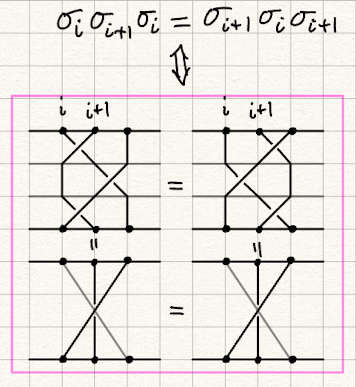 σᵢ σᵢ₊₁ σᵢ = σᵢ₊₁ σᵢ σᵢ₊₁
⇕
i i+1 i i+1
=
= =
=